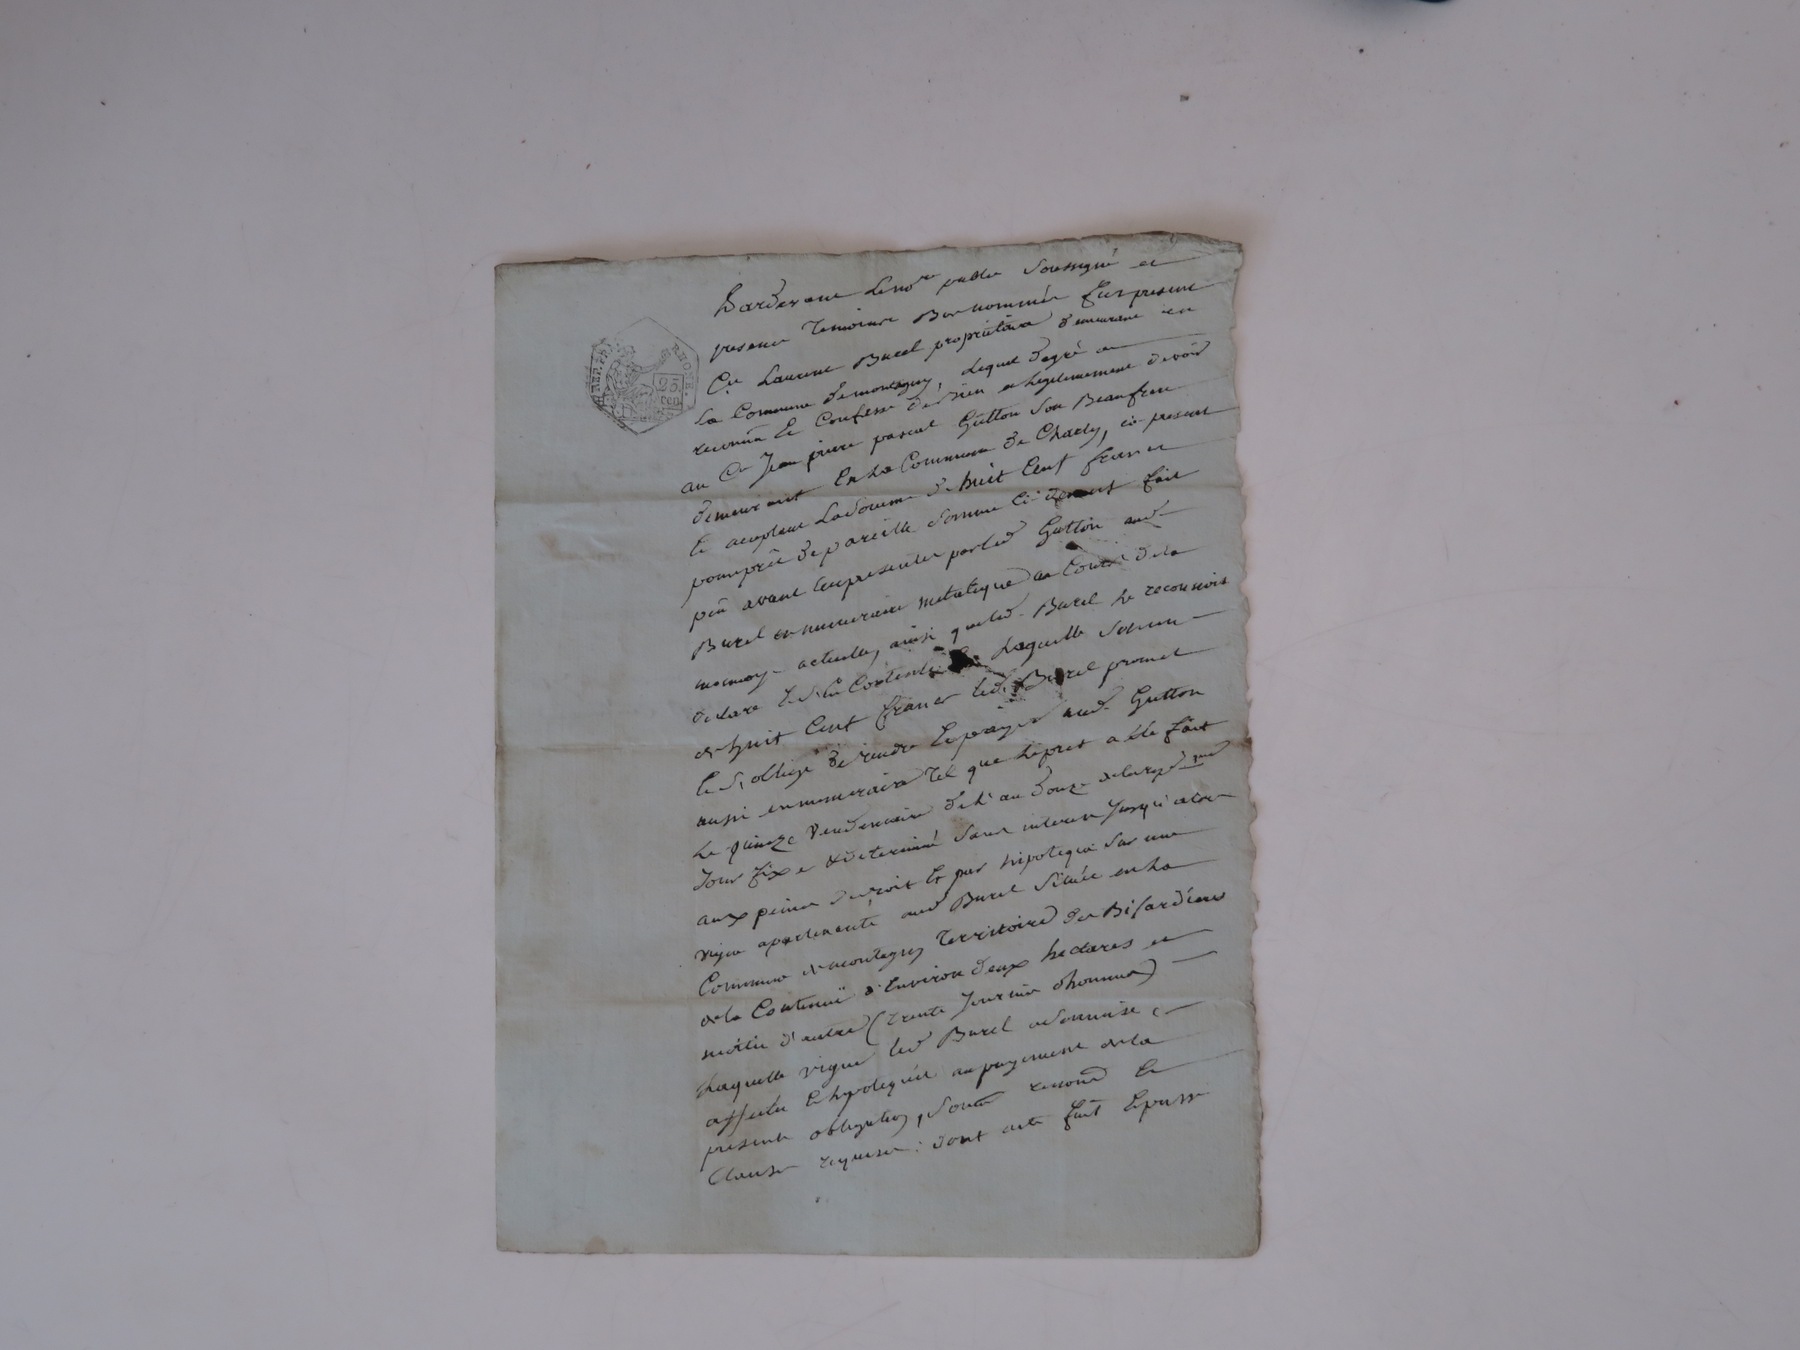 RHONE.
25.
cen
Pardevant le no.re public soussigné et
presence temoins Bas nommés fut present
Cn Laurent Burel propriétaire demeurant en
la Commune de montagny, lequel de gré a
reconnu Et Confessé devoir et legitimement devoir
au Cn Jean pierre pascal Gutton son Beaufrere
demeurant En la Commune de Charly, ici present
Et acceptant La somme de huit Cent francs
pour prêt de pareille somme Ci devant fait
peu avant les presentes par led Gutton aud
Burel en numeraire metalique au Cours de la
monnoye actuelle, ainsi que led. Burel le reconnoit
declare Laquelle somme
de huit Cent francs led. Burel promet
Et s'oblige de rendre Et payer aud Gutton
aussi en numeraire tel que le pret a été fait
Le quinze Vendemiaire de l'an douze de la rep.
Jour fixe et determiné sans interets Jusqu'alors
aux peines de droit Et par hipoteque sur une
vigne apartenante aud Burel située en la
Commune de montagny Territoire des Bisardieres
de la Contenue d'Environ deux hectares et
moitie d'autre (trente Journées d'hommes)
Laquelle vigne led Burel
affectée Et hypotequée au payement de la
presente obligation, sous Et
Clauses requises: dont acte fait Et passé